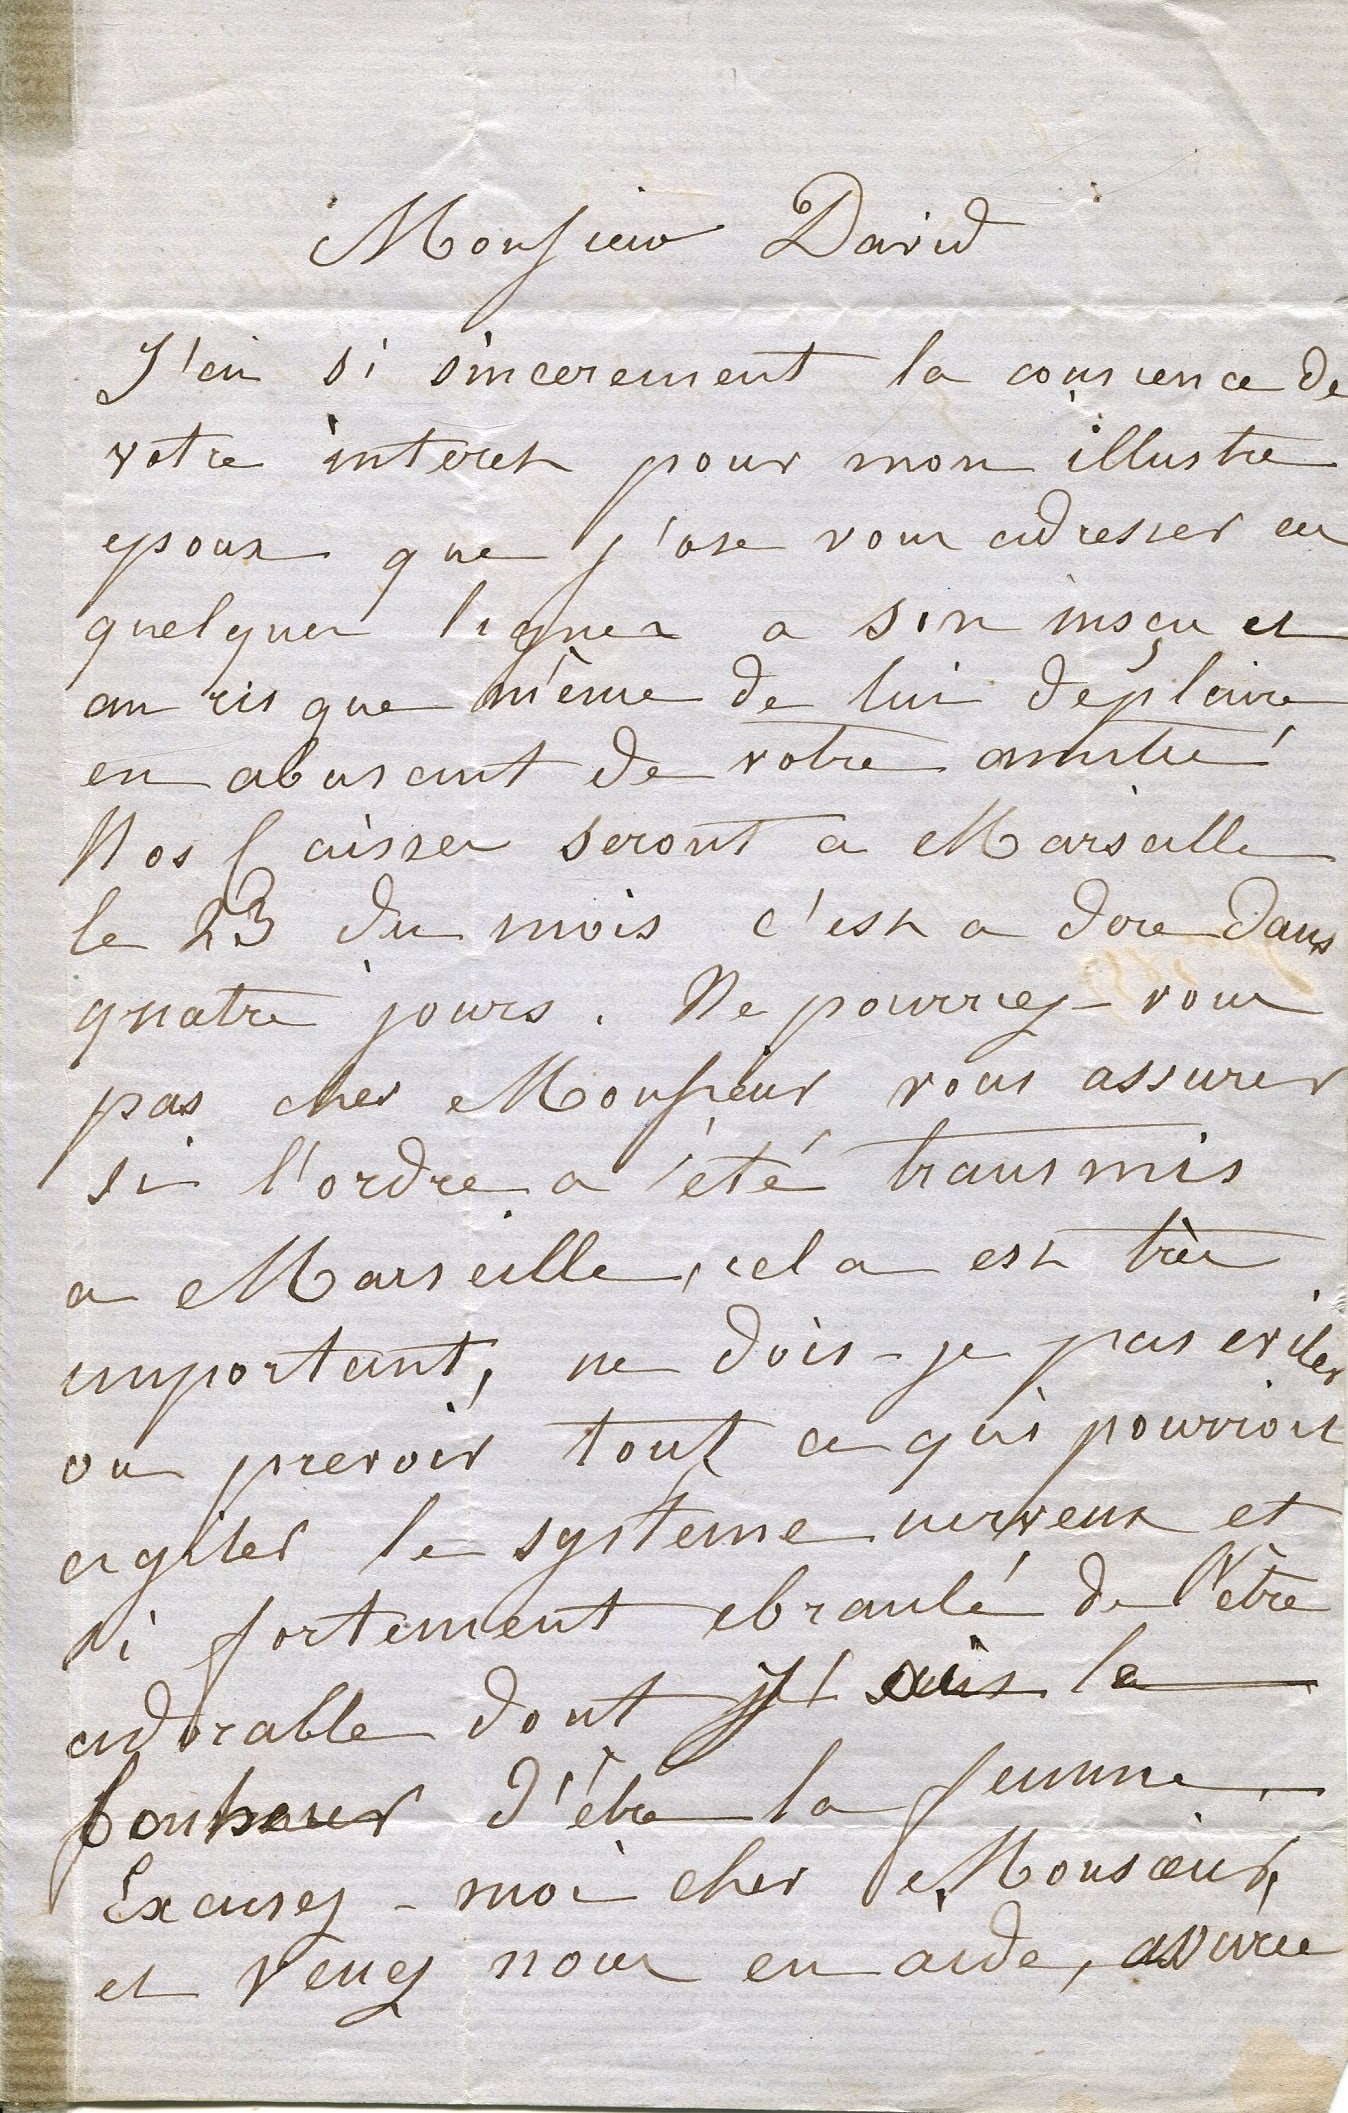 Monsieur David
J'ai si sincerement la conscience de
votre interet pour mon illustre
epoux que j'ose vous adresser ces
quelques lignes a son insçu et
au risque même de lui deplaire
en abusant de votre amitié
Nos Caisses seront a Marseille
le 23 du mois c'est a dire dans
quatre jours. Ne pourriez-vous
pas cher Monsieur vous assurer
si l'ordre a été transmis
a Marseille, cela est très
important, ne dois-je pas eviter
ou prevoir tout ce qui pourroit
agiter le systeme nerveux et
si fortement ebranlé de l'être
adorable dont j'ai le
bonheur d'être la femme.
Excusez-moi cher Monsieur,
et venez nous en aide, assurée